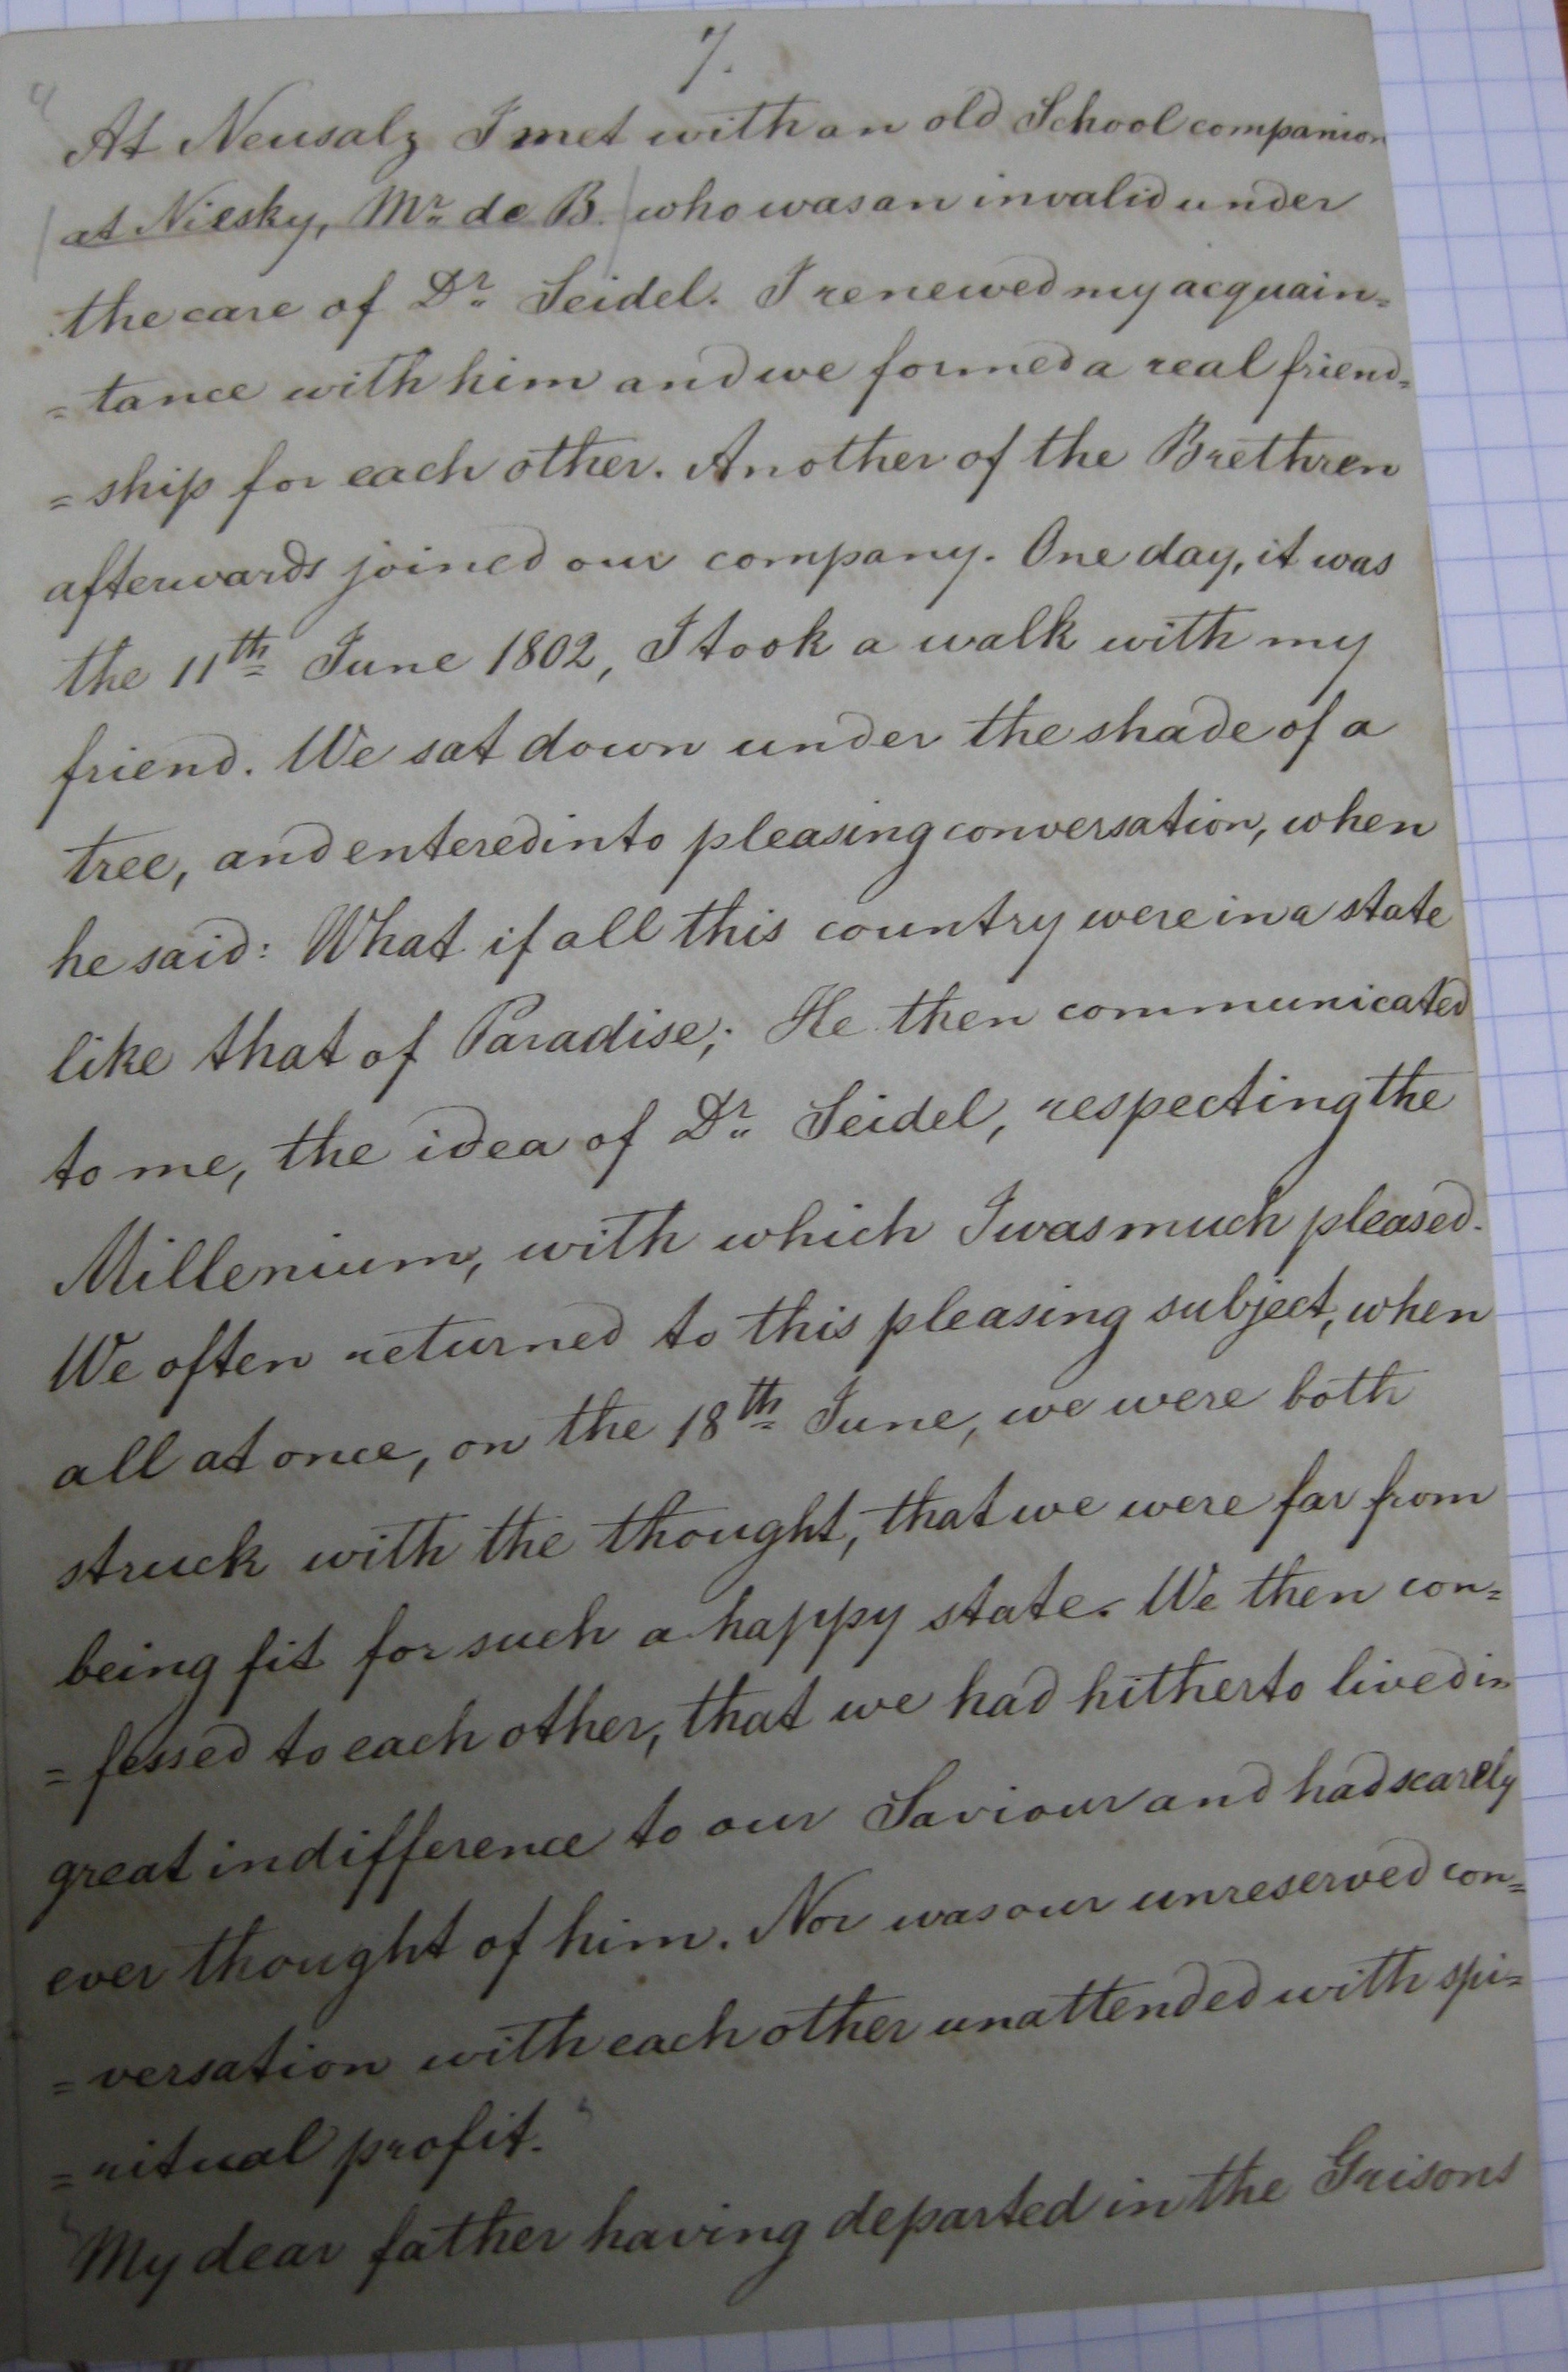 7.
At Neusalz I met with an old School companion
at Niesky, Mr. de B. who was an invalid under
the care of Dr. Seidel. I renewed my acquain=
=tance with him and we formed a real friend=
=ship for each other. Another of the Brethren
afterwards joined our company. One day, it was
the 11th June 1802, I took a walk with my
friend. We sat down under the shade of a
tree, and entered into pleasing conversation, when
he said: What if all this country were in a state
like that of Paradise; He then communicated
to me, the idea of Dr. Seidel, respecting the
Millenium, with which I was much pleased.
We often returned to this pleasing subject, when
all at once, on the 18th June, we were both
struck with the thought, that we were far from
being fit for such a happy state. We then con=
=fessed to each other, that we had hitherto lived in
great indifference to our Saviour and had scarely
ever thought of him. Nor was our unreserved con=
=versation with each other unattended with spi=
=ritual profit."
"My dear father having departed in the Grisons